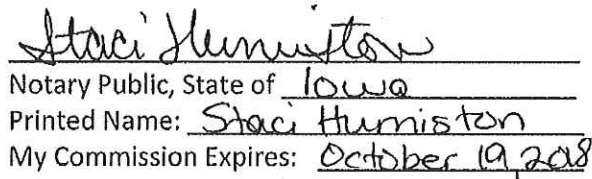 Staci Humiston
Notary Public, State of Iowa
Printed Name: Staci Humiston
My Commission Expires: October 19, 2018